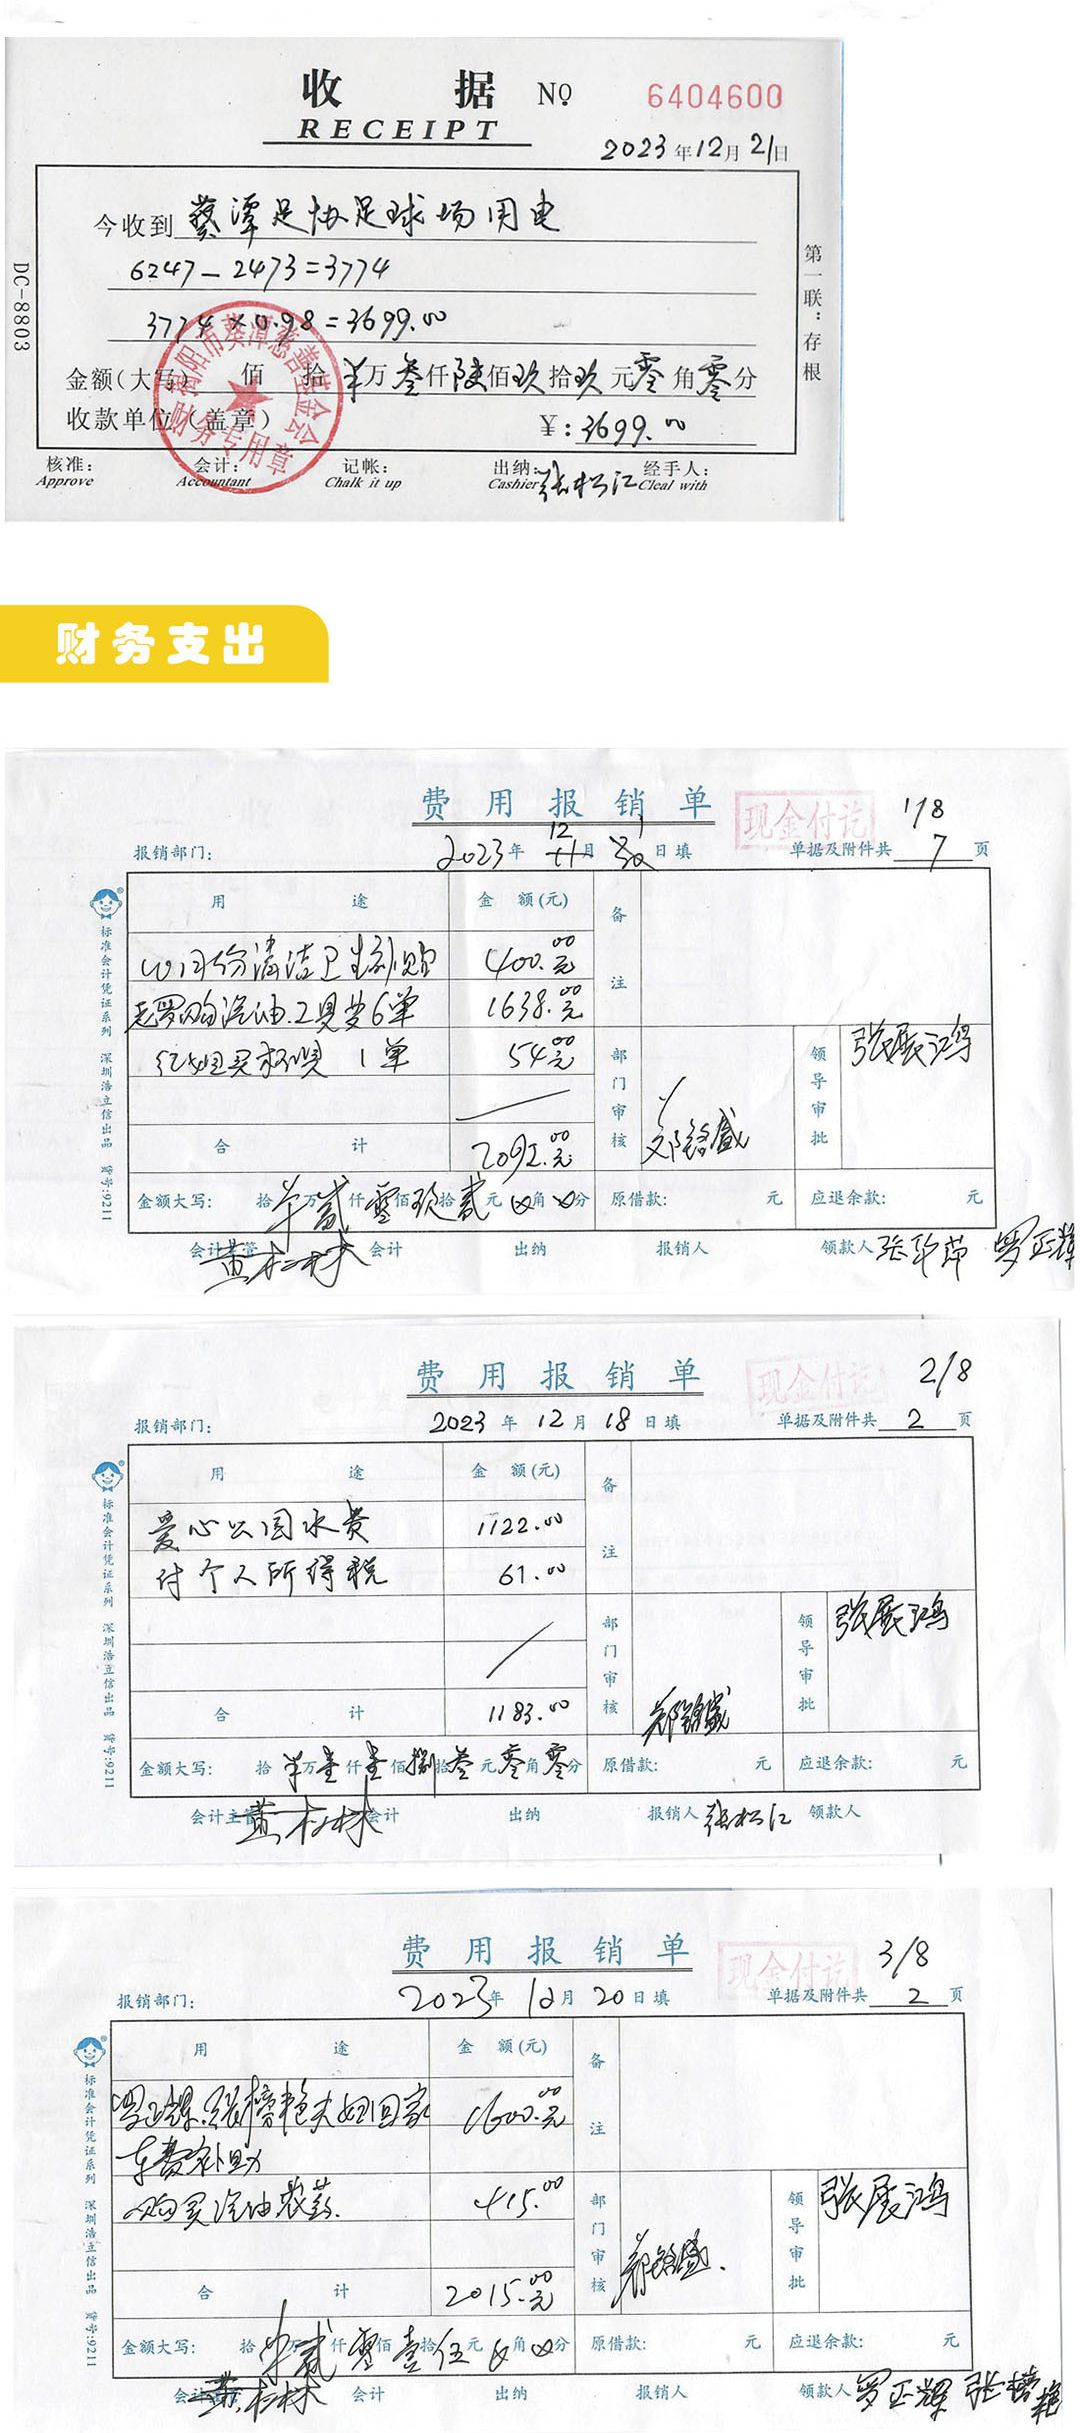 收 据 NO 6404600
RECEIPT
2023年12月21日
今收到 葵潭足协足球场用电
6247-2473=3774
3774×0.98=3699.00
金额(大写) 佰 拾 万叁仟陆佰玖拾玖元零角零分
收款单位(盖章) ¥:3699.00
揭阳市葵潭慈善基金会
财务专用章
核准: 会计: 记帐: 出纳: 张松江 经手人:
Approve Accountant Chalk it up Cashier Cleal with
DC-8803
第一联:存根
财务支出
费用报销单
现金付讫
1/8
报销部门: 2023年12月1日填 单据及附件共 7 页
用途 金额(元) 备注
10月份清洁卫生补贴 400.00元
老罗购汽油.工具等6单 1638.00元
红姐买权 1单 54.00元
部门审核 郑铭盛 领导审批 张展鸿
合计 2092.00元
金额大写: 拾 万贰仟零佰玖拾贰元 角 分 原借款: 元 应退余款: 元
会计主管 黄松林 会计 出纳 报销人 领款人 罗正辉
标准会计凭证系列 深圳浩立信出品 货号:9211
费用报销单
现金付讫
2/8
报销部门: 2023年12月18日填 单据及附件共 2 页
用途 金额(元) 备注
爱心公园水费 1122.00
付个人所得税 61.00
部门审核 郑铭盛 领导审批 张展鸿
合计 1183.00
金额大写: 拾 万壹仟壹佰捌拾叁元零角零分 原借款: 元 应退余款: 元
会计主管 黄松林 会计 出纳 报销人 张松江 领款人
标准会计凭证系列 深圳浩立信出品 货号:9211
费用报销单
现金付讫
3/8
报销部门: 2023年12月20日填 单据及附件共 2 页
用途 金额(元) 备注
罗正辉.张榕艳夫妇回家 1600.00元
车费补助
购买汽油农药. 415.00
部门审核 郑铭盛. 领导审批 张展鸿
合计 2015.00元
金额大写: 拾 万贰仟零佰壹拾伍元 角 分 原借款: 元 应退余款: 元
会计主管 黄松林 会计 出纳 报销人 领款人 罗正辉 张榕艳
标准会计凭证系列 深圳浩立信出品 货号:9211